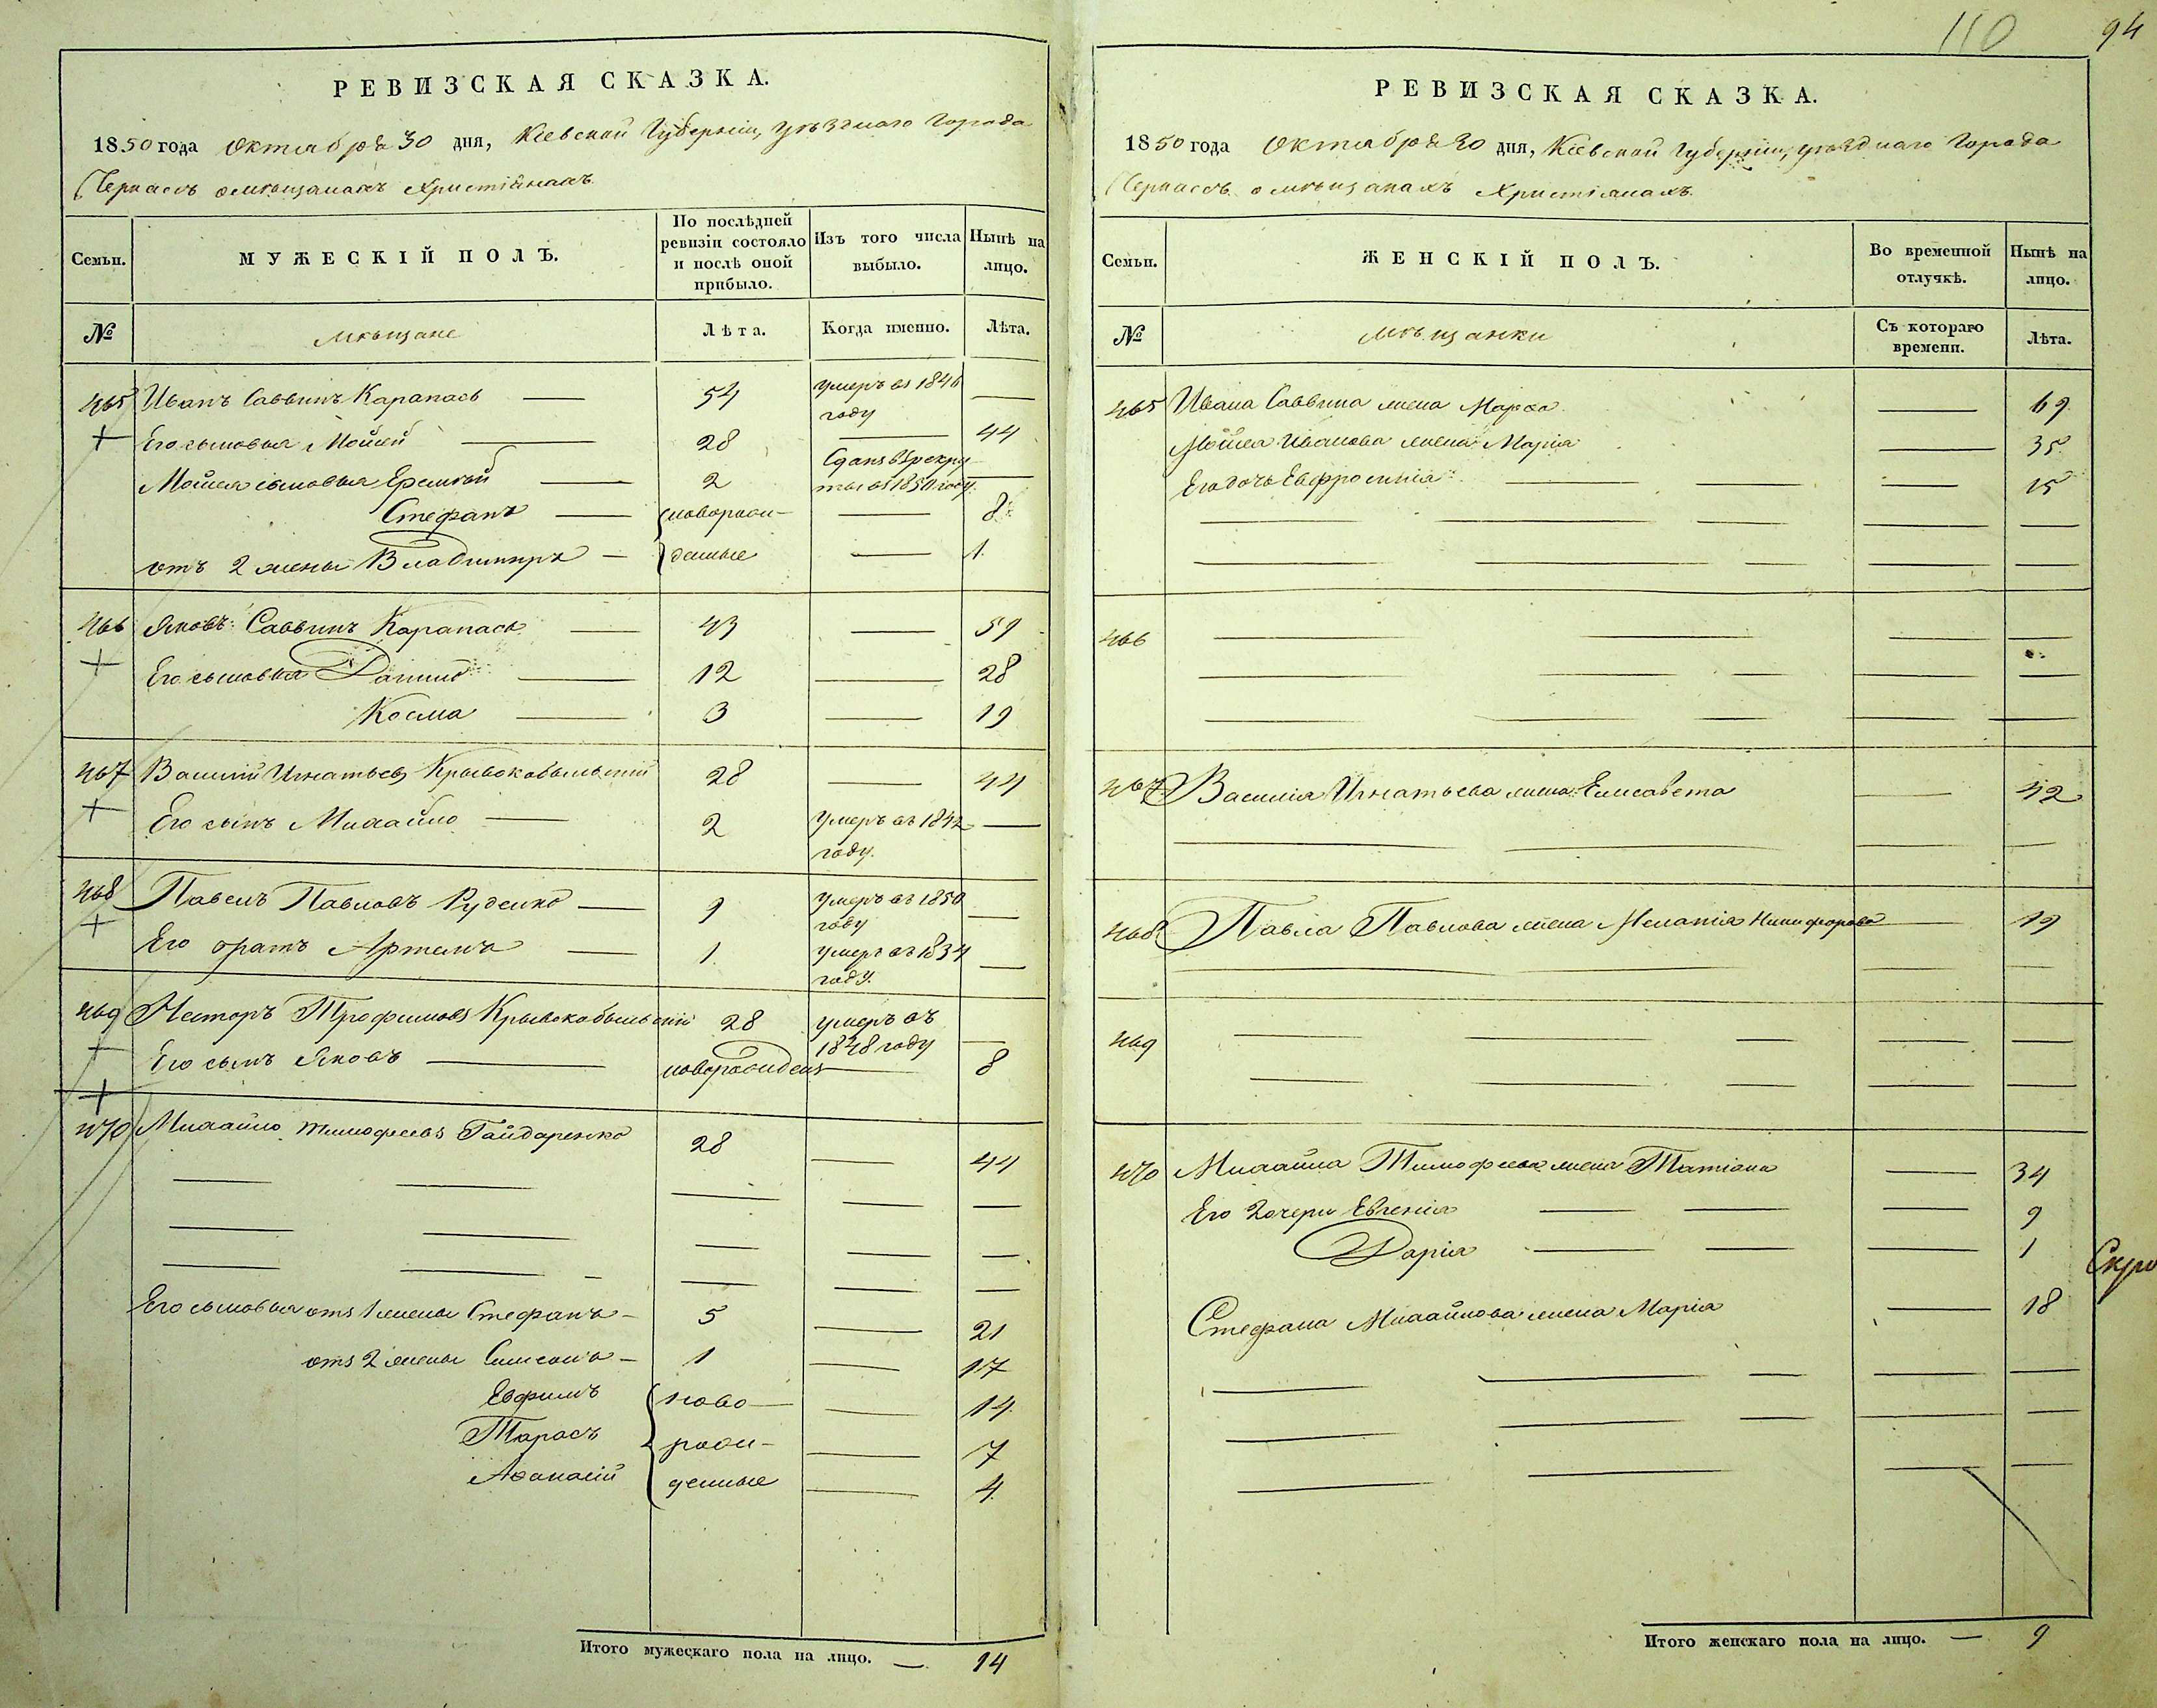 110
94
РЕВИЗСКАЯ СКАЗКА.
1850 года Октября 30 дня, Кіевской Губерніи, уѣзднаго Города
Черкассъ о мѣщанахъ Христіянахъ.
Семьи.
МУЖЕСКІЙ ПОЛЪ.
По послѣдней ревизіи состояло и послѣ оной прибыло.
Изъ того числа выбыло.
Нынѣ на лицо.
№
мѣщане
Лѣта.
Когда именно.
Лѣта.
465 Иванъ Саввинъ Карапась — 54 умеръ въ 1846 году —
Его сыновья Мойсей — 28 — 44
Мойсея сыновья Еремѣй — 2 Сданъ въ рекруты въ 1850 году —
Стефанъ — новорожденные — 8
отъ 2 жены Владимиръ — — 1
466 Яковъ Саввинъ Карапась — 43 — 59
Его сыновья Данило — 12 — 28
Косма — 3 — 19
467 Василій Игнатьевъ Крывокобыльскій 28 — 44
Его сынъ Михайло — 2 Умеръ въ 1842 году. —
468 Павелъ Павловъ Руденко — 9 Умеръ въ 1850 году —
Его братъ Артемъ — 1 умеръ въ 1834 году. —
469 Несторъ Трофимовъ Крывокобыльскій 28 умеръ въ 1848 году —
Его сынъ Яковъ — новорожденъ — 8
470 Михайло Тимофеевъ Гайдаренко 28 — 44
Его сыновья отъ 1 жены Стефанъ — 5 — 21
отъ 2 жены Симеонъ — 1 — 17
Евфимъ ново — 14
Тарасъ рож — 7
Афанасій денные — 4
Итого мужескаго пола на лицо. — 14
РЕВИЗСКАЯ СКАЗКА.
1850 года Октября 30 дня, Кіевской Губерніи, уѣзднаго Города
Черкассъ о мѣщанахъ Христіянахъ.
Семьи.
ЖЕНСКІЙ ПОЛЪ.
Во временной отлучкѣ.
Нынѣ на лицо.
№
мѣщанки
Съ котораго времени.
Лѣта.
465 Ивана Саввина жена Марѳа — 69
Мойсея Иванова жена Марія — 35
Его дочь Евфросинія — 15
466
467 Василія Игнатьева жена Елисавета — 42
468 Павла Павлова жена Меланія Никифорова — 19
469
470 Михайла Тимофеева жена Татіана — 34
Его дочери Евгенія — 9
Дарія — 1
Стефана Михайлова жена Марія — 18
Итого женскаго пола на лицо. — 9